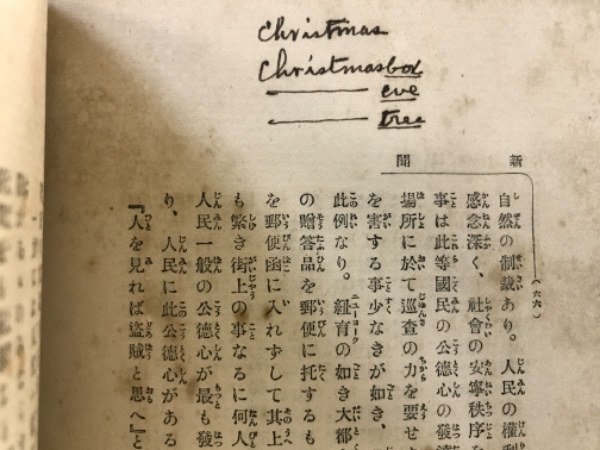 Christmas
Christmasbox
—— eve
—— tree
新聞
(六六)
自然の制裁あり。人民の權利
感念深く、社會の安寧秩序を
事は此等國民の公德心の發達
場所に於て巡查の力を要せ
を害する事少なきが如き、
此例なり。紐育の如き大都
の贈答品を郵便に托するも
を郵便函に入れずして其上
も繁き街上の事なるに何人
人民一般の公德心が最も發
り、人民に此公德心がある
『人を見れば盜賊と思へ』と